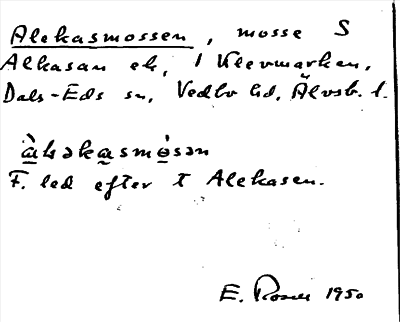 Alekasmossen, mosse S
Alkasan ek, i Klevmarken,
Dals-Eds sn, Vedbo hd, Älvsb. l.
àlsəkasmósən
F. led efter t Alekasen.
E. Rosell 1950